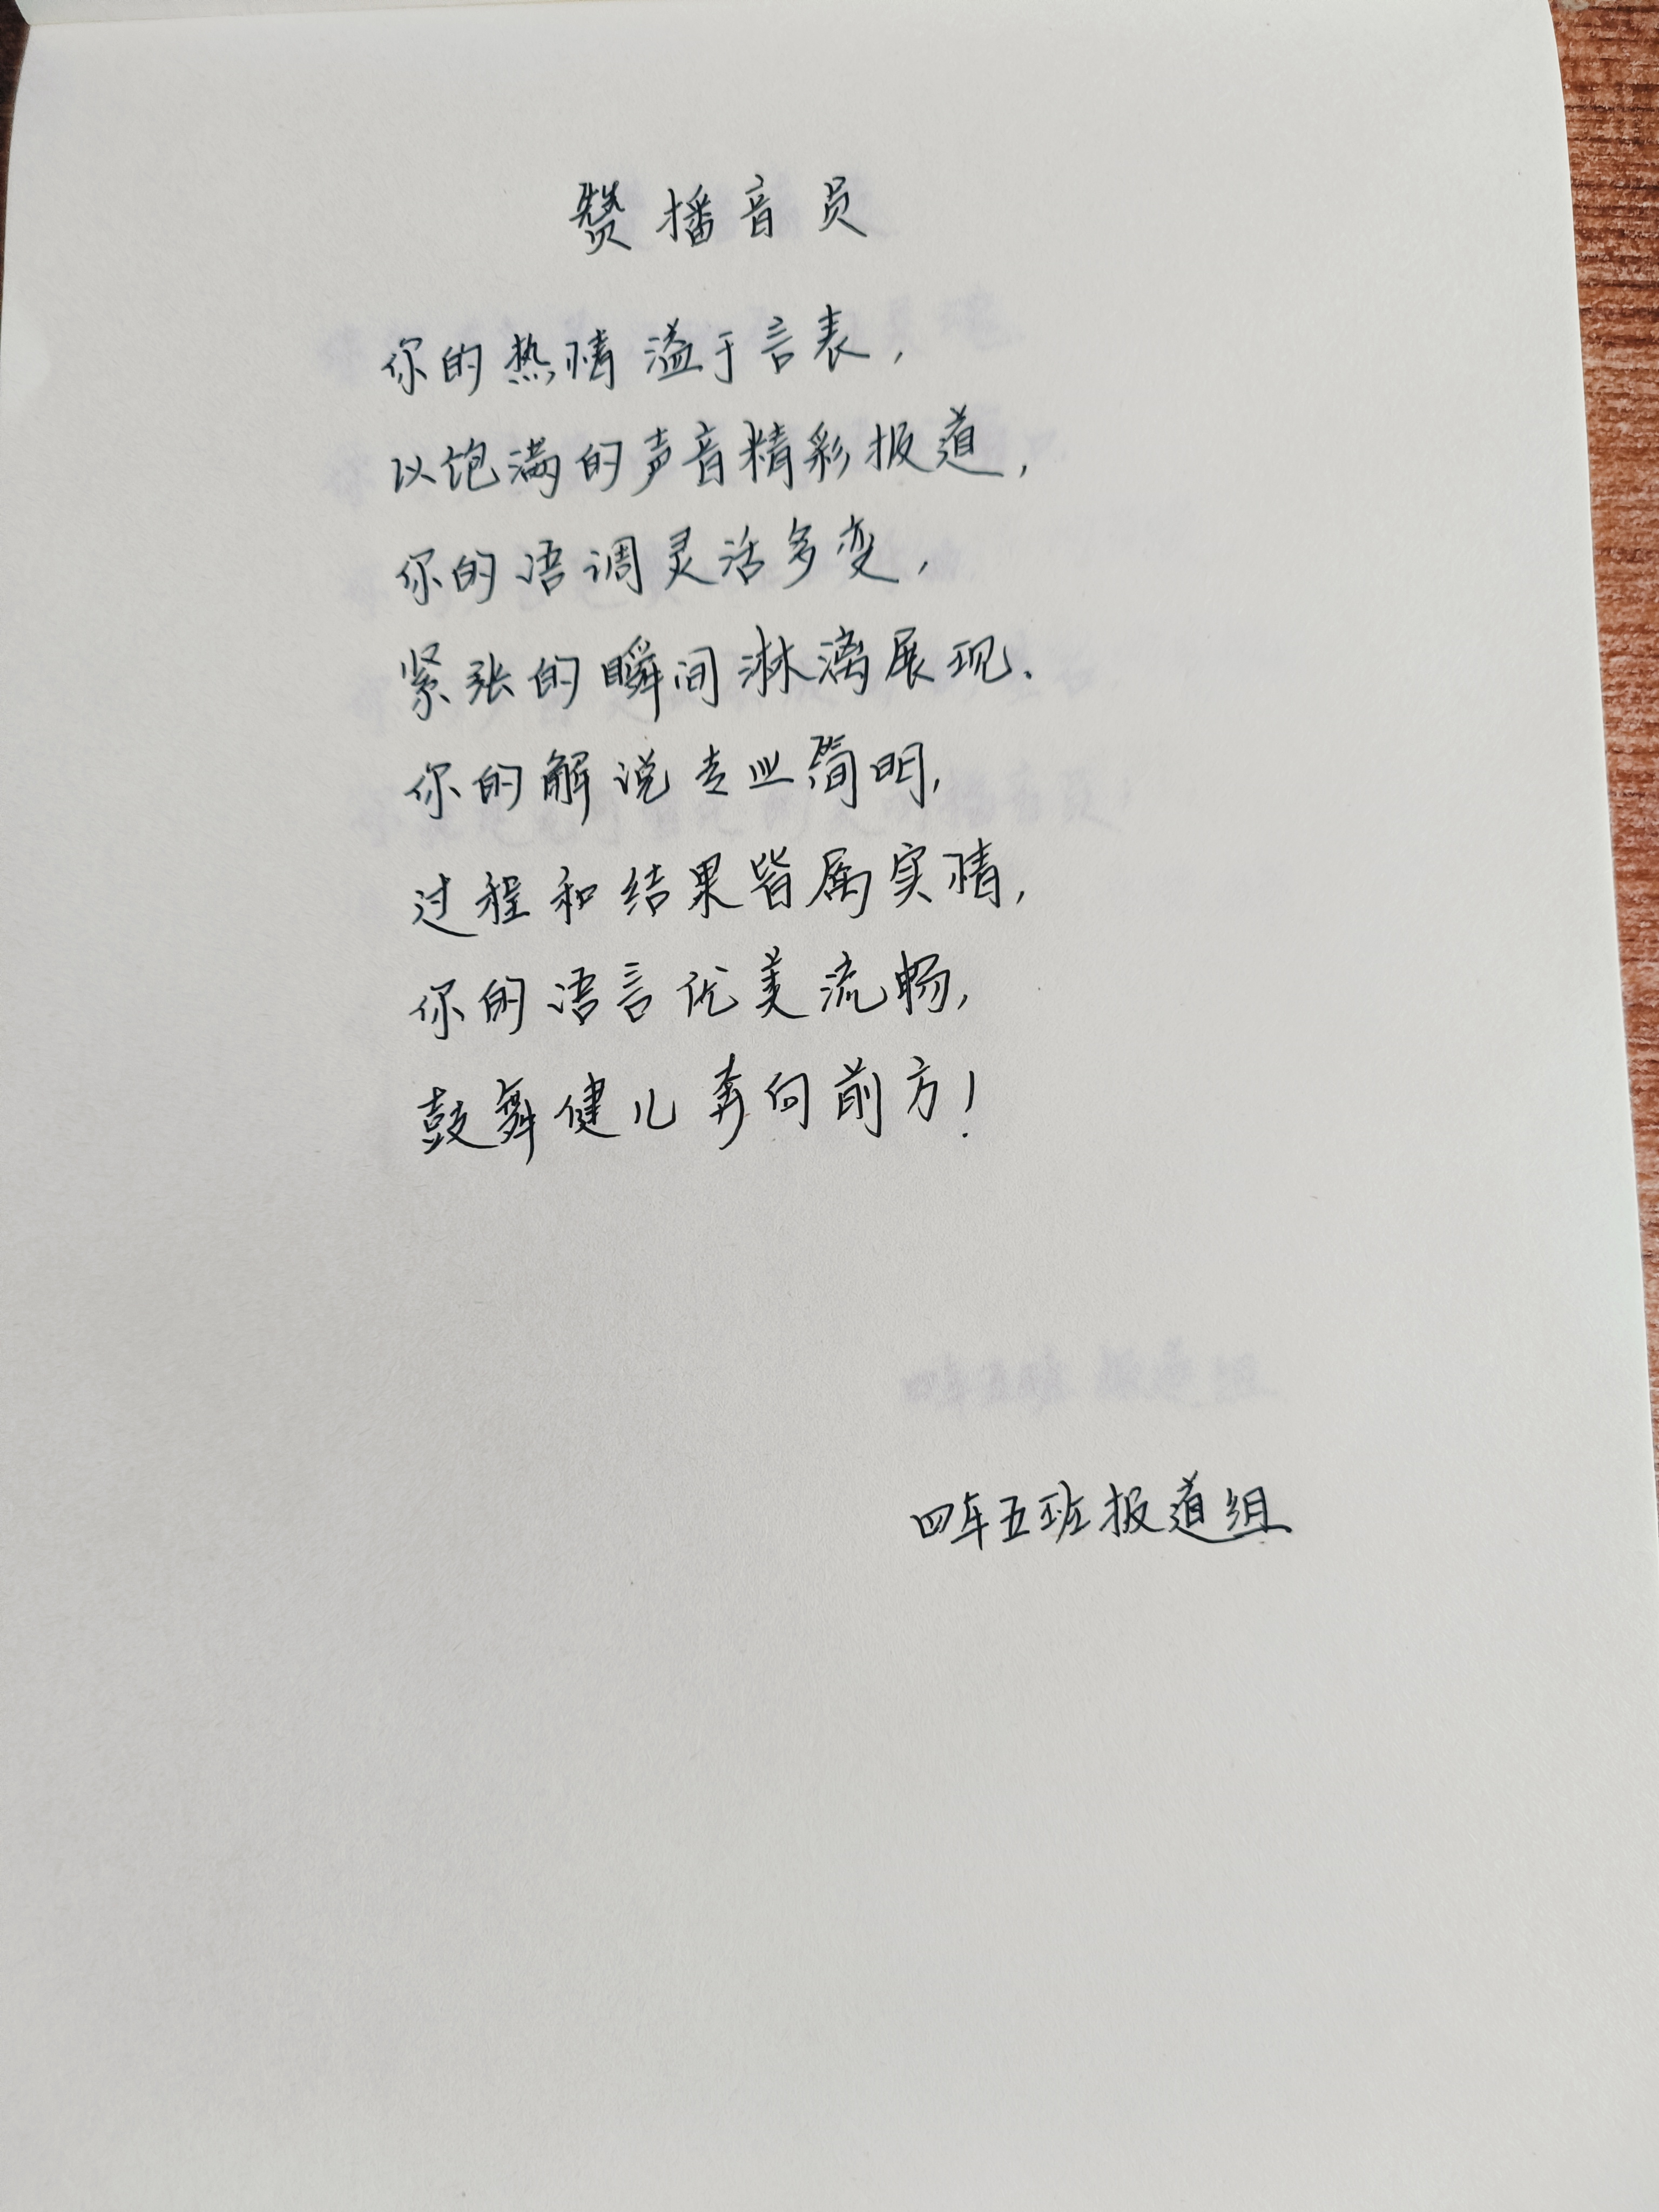 赞播音员
你的热情溢于言表，
以饱满的声音精彩报道，
你的语调灵活多变，
紧张的瞬间淋漓展现.
你的解说专业简明，
过程和结果皆属实情，
你的语言优美流畅，
鼓舞健儿奔向前方！
四年五班报道组